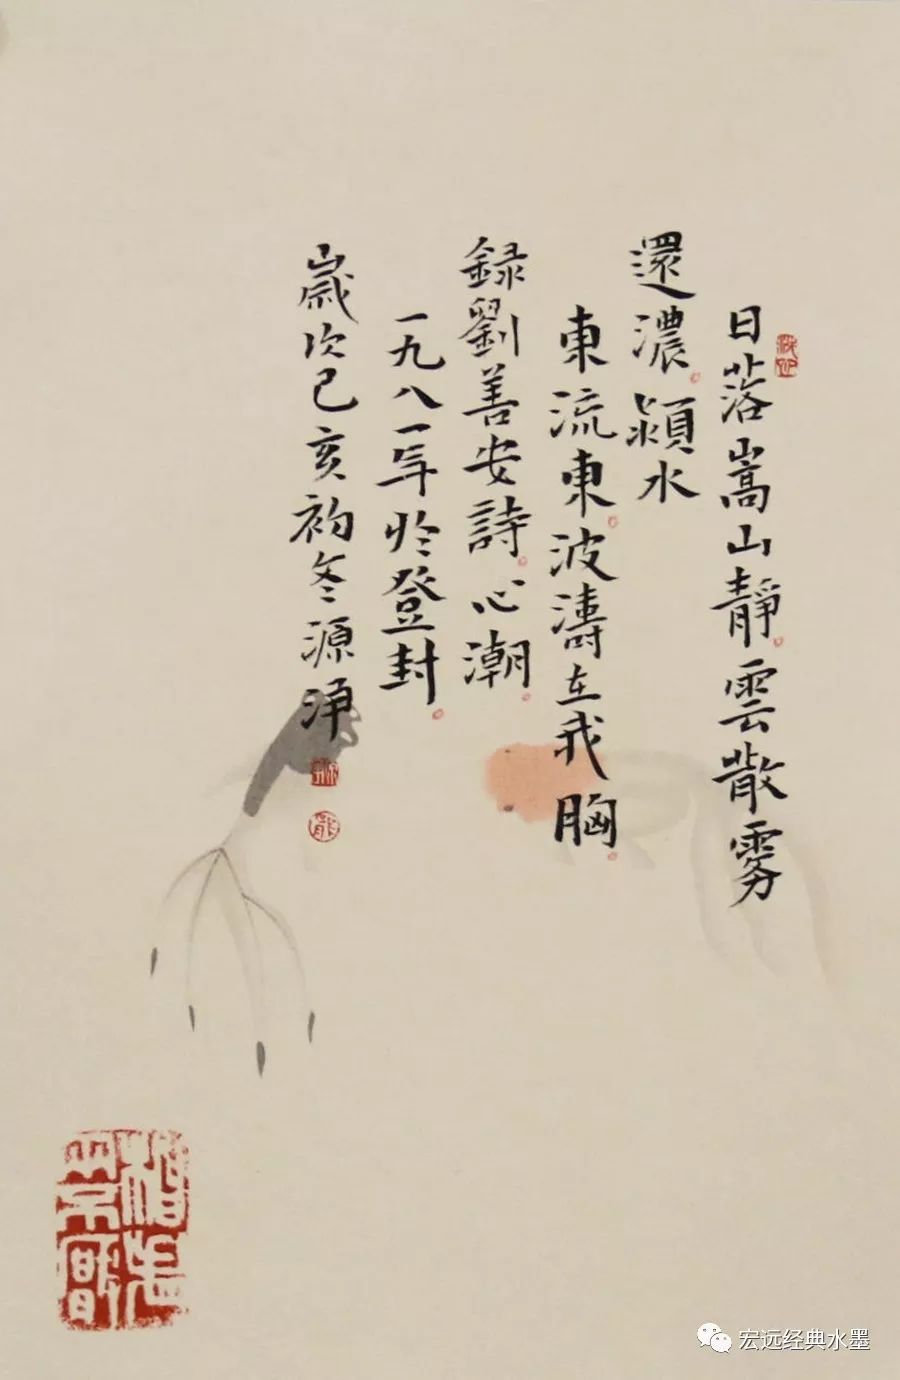 日落嵩山靜雲散雾
還濃潁水
東流東波濤在我胸
録劉善安詩心潮
一九八一年於登封
歲次己亥初冬源净
宏远经典水墨